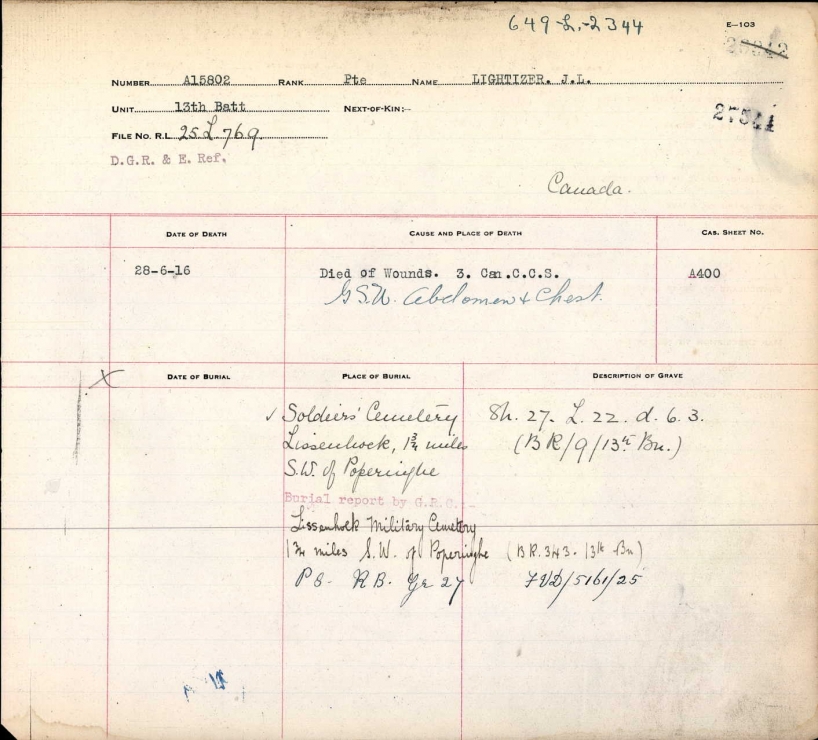 649-L-2344
E-103
27344
NUMBER A15802 RANK Pte NAME LIGHTIZER. J.L.
UNIT 13th Batt NEXT-OF-KIN:-
FILE NO. R.L. 25.L.769.
D.G.R. & E. Ref.
Canada.
DATE OF DEATH CAUSE AND PLACE OF DEATH CAS. SHEET NO.
28-6-16 Died of Wounds. 3. Can.C.C.S. A400
G.S.W. Abdomen & Chest.
X DATE OF BURIAL PLACE OF BURIAL DESCRIPTION OF GRAVE
✓ Soldiers' Cemetery Sh. 27. L. 22. d. 6. 3.
Lissenhock, 1 3/4 miles (BR/9/13th Bn.)
S.W. of Poperinghe
Burial report by G.R.C.:-
Lissenhoek Military Cemetery
1 3/4 miles S.W. of Poperinghe (BR.343. 13th Bn)
P 8. R B. Gr 27 FVD/5161/25